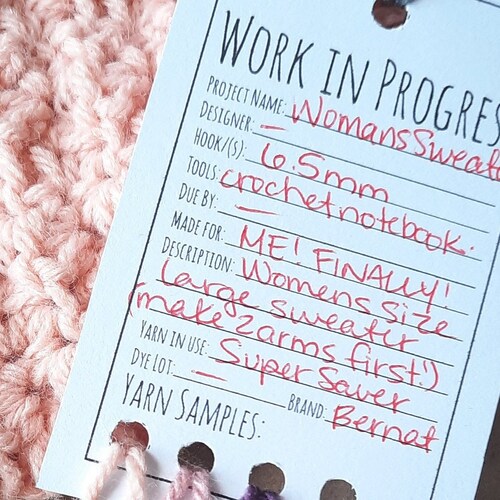 WORK IN PROGRES
PROJECT NAME: Womans Sweat
DESIGNER: —
HOOK/(S): 6.5mm
TOOLS: crochet notebook.
DUE BY: —
MADE FOR: ME! FINALLY!
DESCRIPTION: Womens size
large sweater
(make 2 arms first!)
YARN IN USE: Super Saver
DYE LOT: — BRAND: Bernat
YARN SAMPLES: